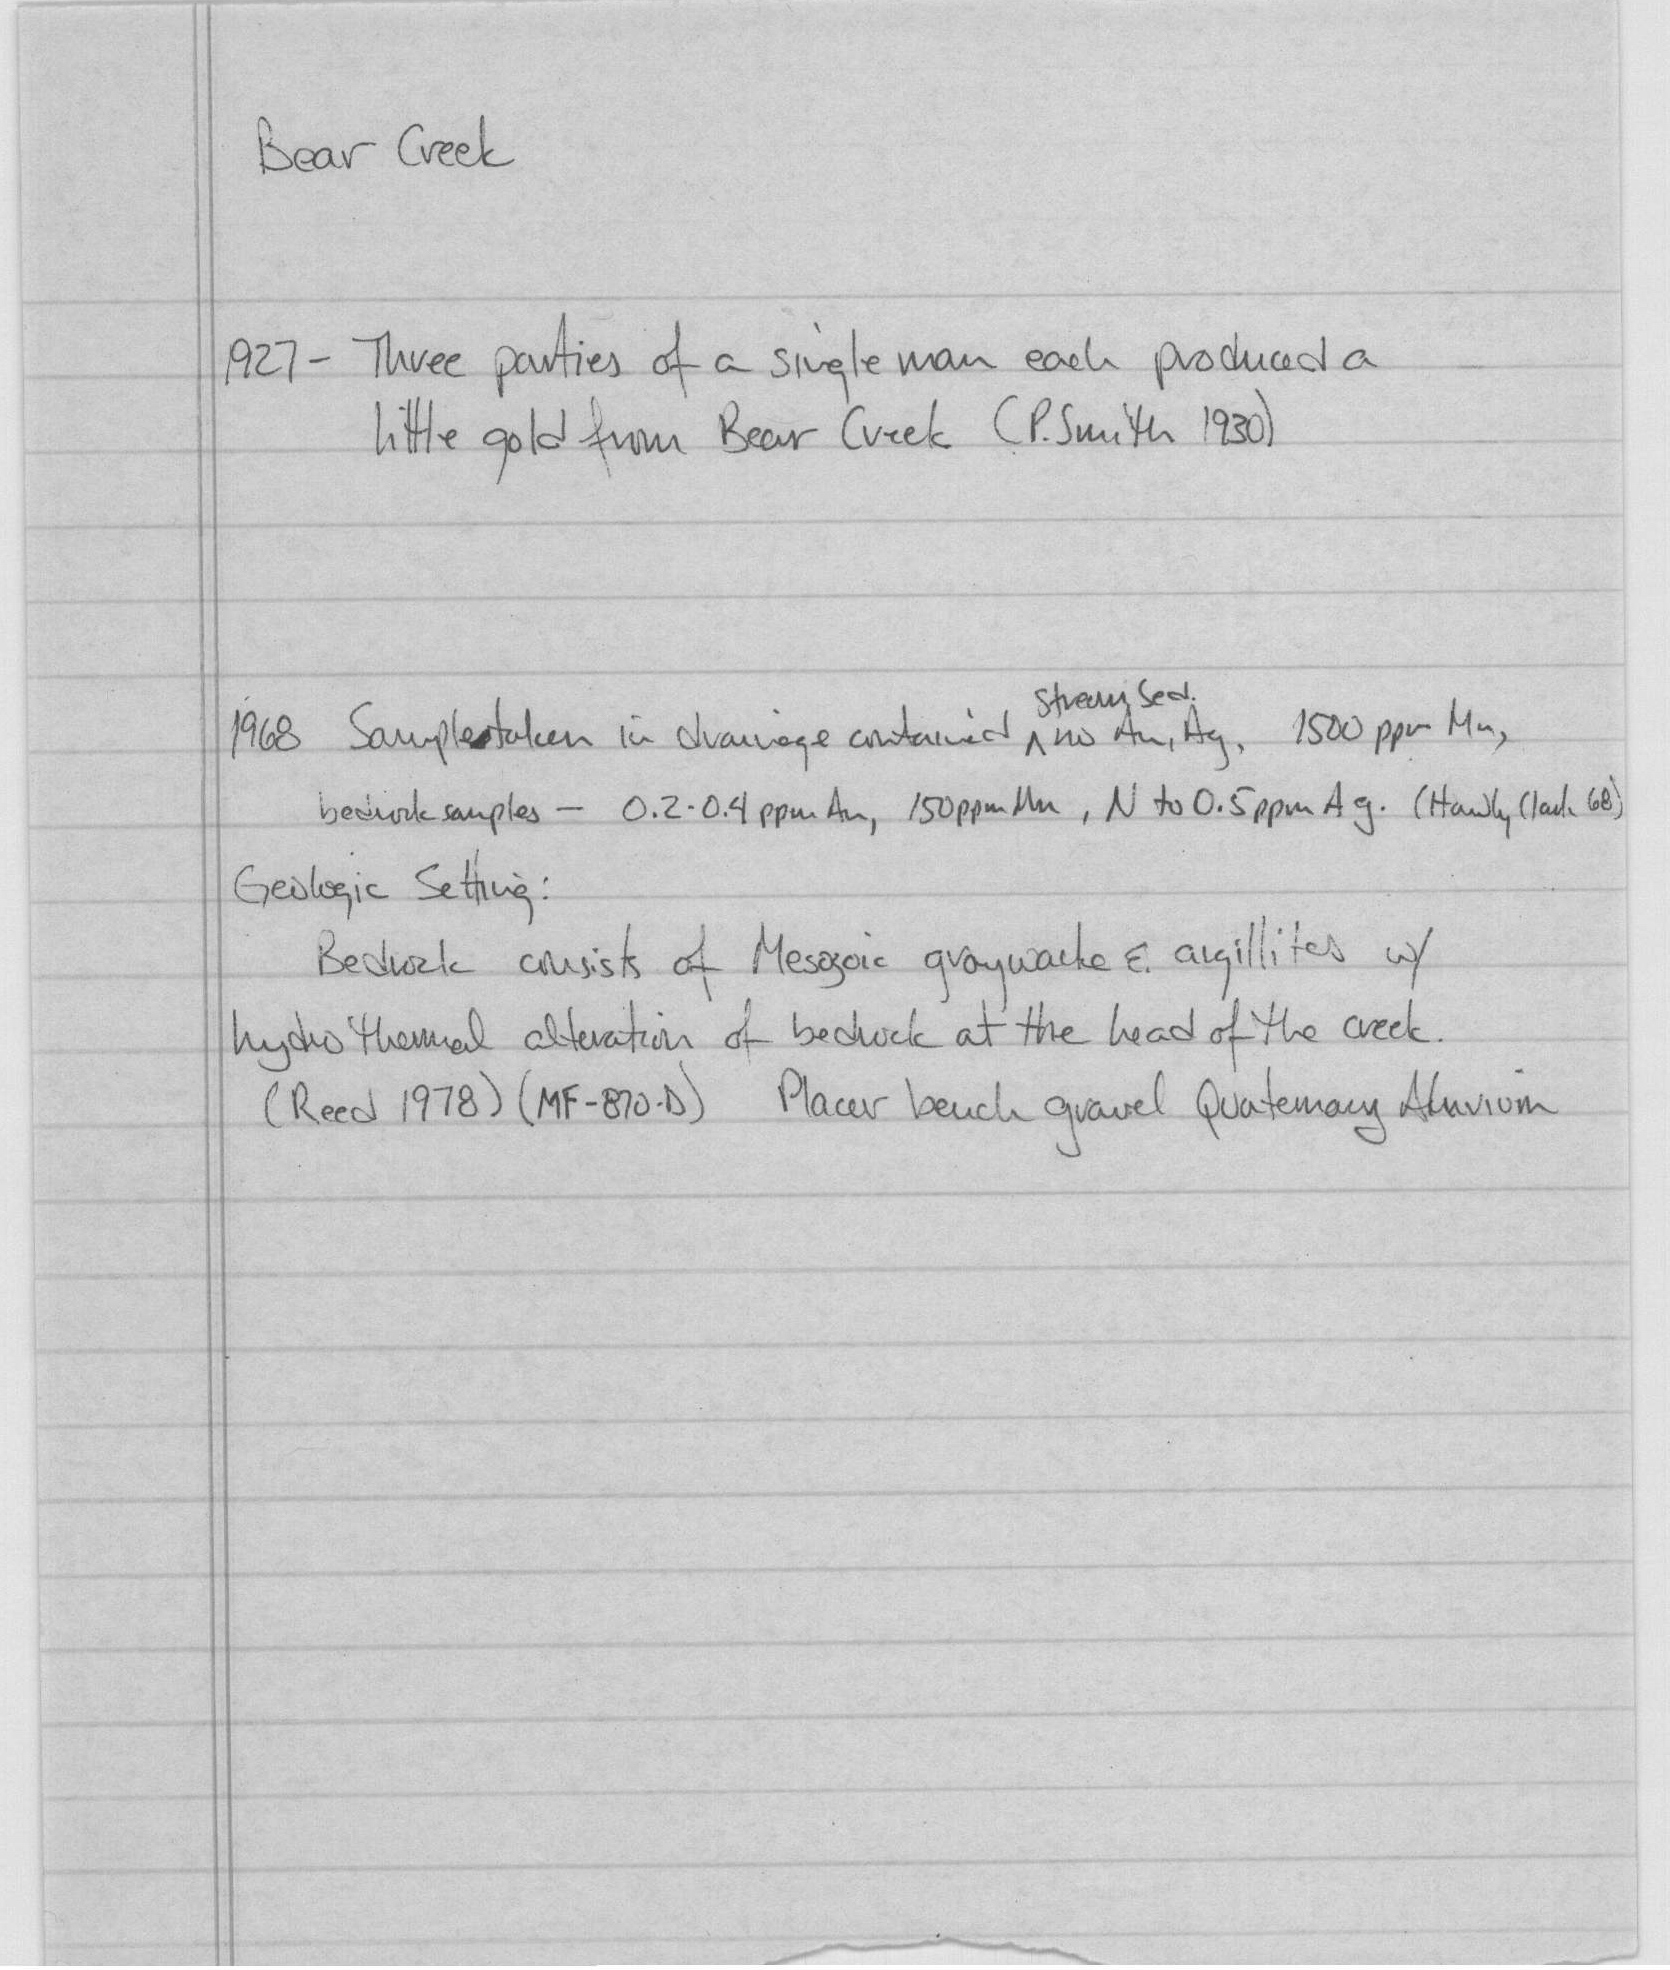 Bear Creek
1927- Three parties of a single man each produced a
little gold from Bear Creek (P. Smith 1930)
Stream Sed.
1968 Samples taken in drainage contained ^ no Au, Ag, 1500 ppm Mn,
bedrock samples - 0.2-0.4 ppm Au, 150 ppm Mn, N to 0.5 ppm Ag. (Hawly, Clark 68)
Geologic Setting:
Bedrock consists of Mesozoic graywacke & argillites w/
hydrothermal alteration of bedrock at the head of the creek.
(Reed 1978) (MF-870-D) Placer bench gravel Quaternary Alluvium